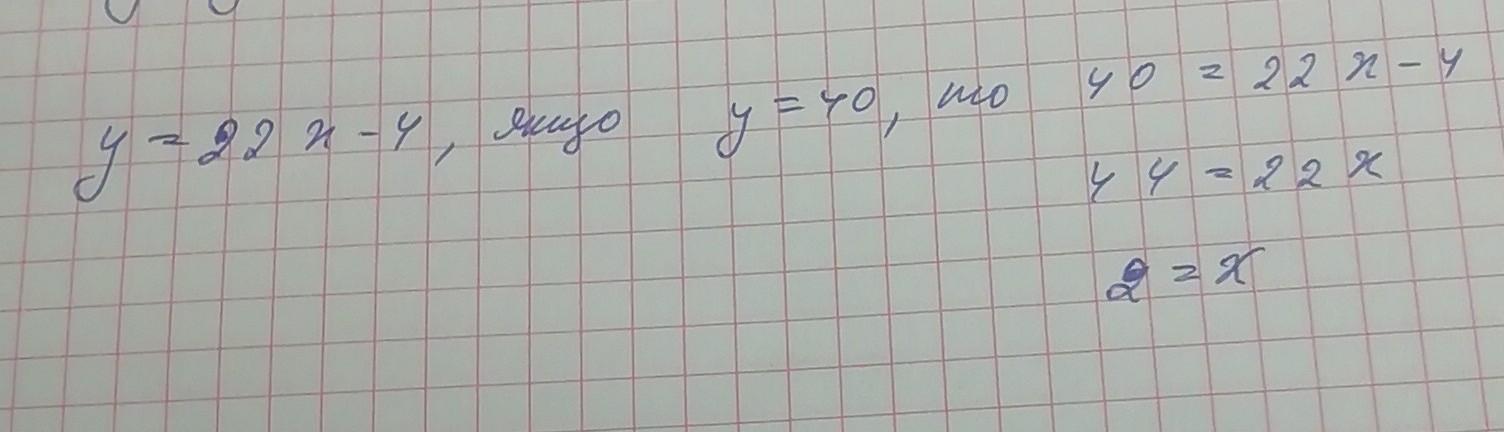 y = 22x - 4, якщо y = 40, то 40 = 22x - 4
44 = 22x
2 = x